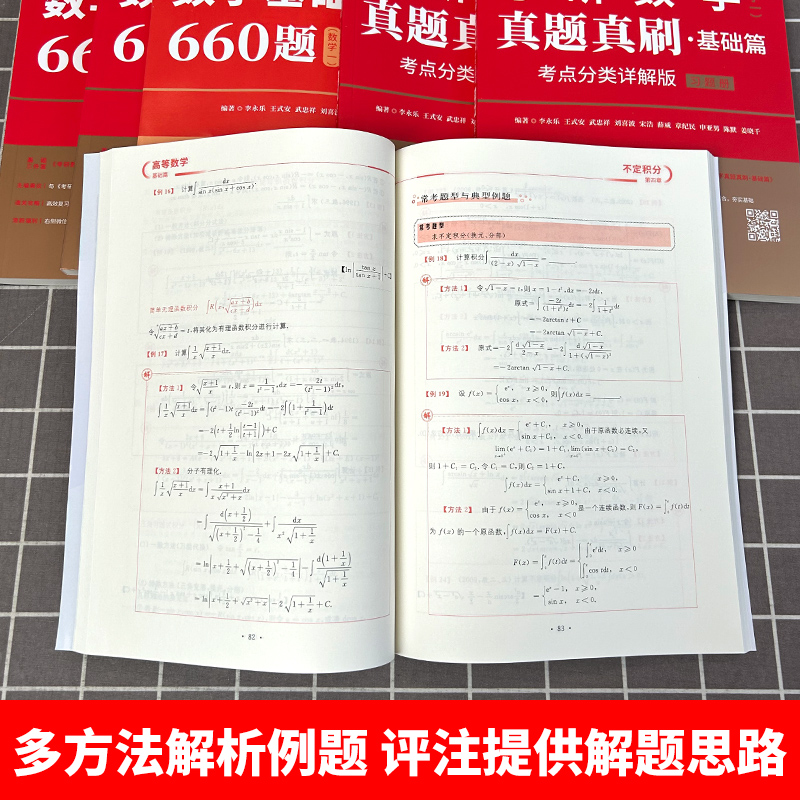 660题
(数学一)
真题真刷·基础篇
考点分类
考点分类详解版 习题册
编著◎李永乐 王式安 武忠祥 刘喜波
编著◎李永乐 王式安 武忠祥 刘喜波 宋浩 薛威 章纪民 申亚男 陈默 姜晓千
高等数学
基础篇
【例 16】 计算∫dx/(sin x(sin x+cos x)).
简单无理函数积分 ∫R(x, √((ax+b)/(cx+d)))dx
令√((ax+b)/(cx+d))=t,将其化为有理函数积分进行计算.
【例 17】 计算∫(1/x)√((x+1)/x)dx.
解
【方法 1】 令√((x+1)/x)=t,则 x=1/(t²-1),dx=-2t/(t²-1)²dt,
∫(1/x)√((x+1)/x)dx=∫(t²-1)t·(-2t)/(t²-1)²dt=-2∫(1+1/(t²-1))dt
=-2(t+(1/2)ln|(t-1)/(t+1)|)+C
=-2√(1+1/x)-ln|2x+1-2x√(1+1/x)|+C.
【方法 2】 分子有理化.
∫(1/x)√((x+1)/x)dx=∫(x+1)/(x√(x²+x))dx
=∫d(x+1/2)/√((x+1/2)²-1/4)+∫dx/(x²√(1+1/x))
=ln|x+1/2+√((x+1/2)²-1/4)|-∫d(1+1/x)/√(1+1/x)
=ln|x+1/2+√(x²+x)|-2√(1+1/x)+C.
· 82 ·
不定积分
第六章
常考题型与典型例题
常考题型
求不定积分(换元、分部)
【例 18】 计算积分∫dx/((2-x)√(1-x))=______.
解
【方法 1】 令√(1-x)=t,则 x=1-t²,dx=-2tdt,
原式=∫-2t/((1+t²)t)dt=-2∫1/(1+t²)dt
=-2arctan t+C
=-2arctan √(1-x)+C.
【方法 2】 原式=-2∫d√(1-x)/(2-x)=-2∫d√(1-x)/(1+(√(1-x))²)
=-2arctan √(1-x)+C.
【例 19】 设 f(x)={eˣ, x≥0, cos x, x<0, 则∫f(x)dx=______.
解
【方法 1】 ∫f(x)dx={eˣ+C₁, x≥0, sin x+C₂, x<0. 由于原函数必连续,又
lim(eˣ+C₁)=1+C₁,lim(sin x+C₂)=C₂,
则 1+C₁=C₂,令 C₁=C,则 C₂=1+C,
∫f(x)dx={eˣ+C, x≥0, sin x+1+C, x<0.
【方法 2】 由于 f(x)={eˣ, x≥0, cos x, x<0 是一个连续函数,则 F(x)=∫₀ˣf(t)dt
为 f(x) 的一个原函数,∫f(x)dx=F(x)+C.
F(x)=∫₀ˣf(t)dt={∫₀ˣeᵗdt, x≥0 ∫₀ˣcos tdt, x<0
={eˣ-1, x≥0, sin x, x<0.
· 83 ·
多方法解析例题 评注提供解题思路